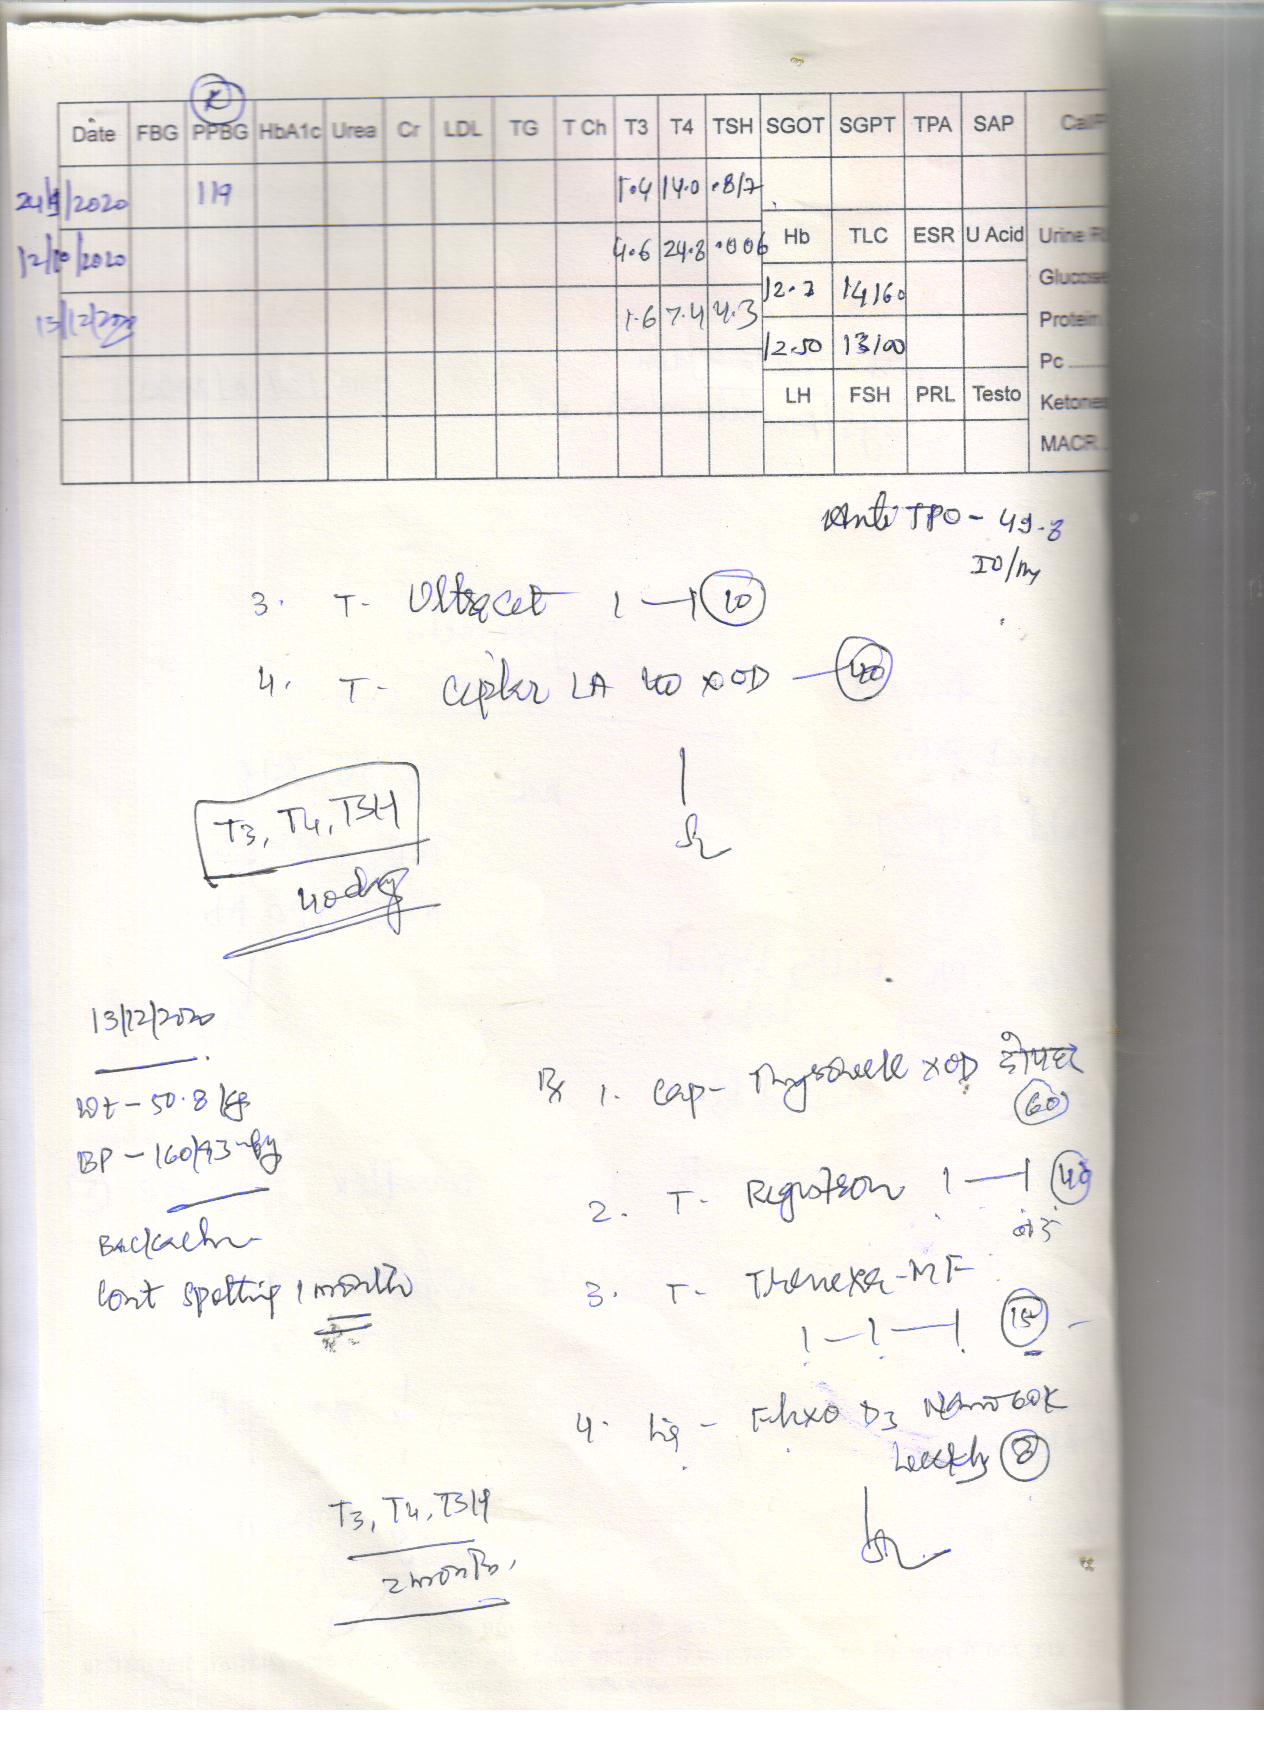 Date FBG PPBG HbA1c Urea Cr LDL TG T Ch T3 T4 TSH SGOT SGPT TPA SAP
24/9/2020 119 1.4 14.0
Hb TLC ESR U Acid
12/10/2020 4.6 24.8 .006
Glucose
12.7 14160
13/12/2020 1.6 7.4 4.3
Protein
12.50 13100
Pc
LH FSH PRL Testo
Ketones
MACR
Anti TPO - 49.8
3. T- Ultracet 1 — 1 10
4. T- LA 40 x OD — 40
T3, T4, TSH
40 day
13/12/2020
Wt - 50.8 kg
BP - 160/93
Backache
Cont spotting 1 month
Rx 1. Cap- x OD दोपहर
60
2. T- 1 — 1 40
3. T- -MF
1 — 1 — 1 15
4. Liq - D3 Nano 60K
weekly 8
T3, T4, TSH
2 month